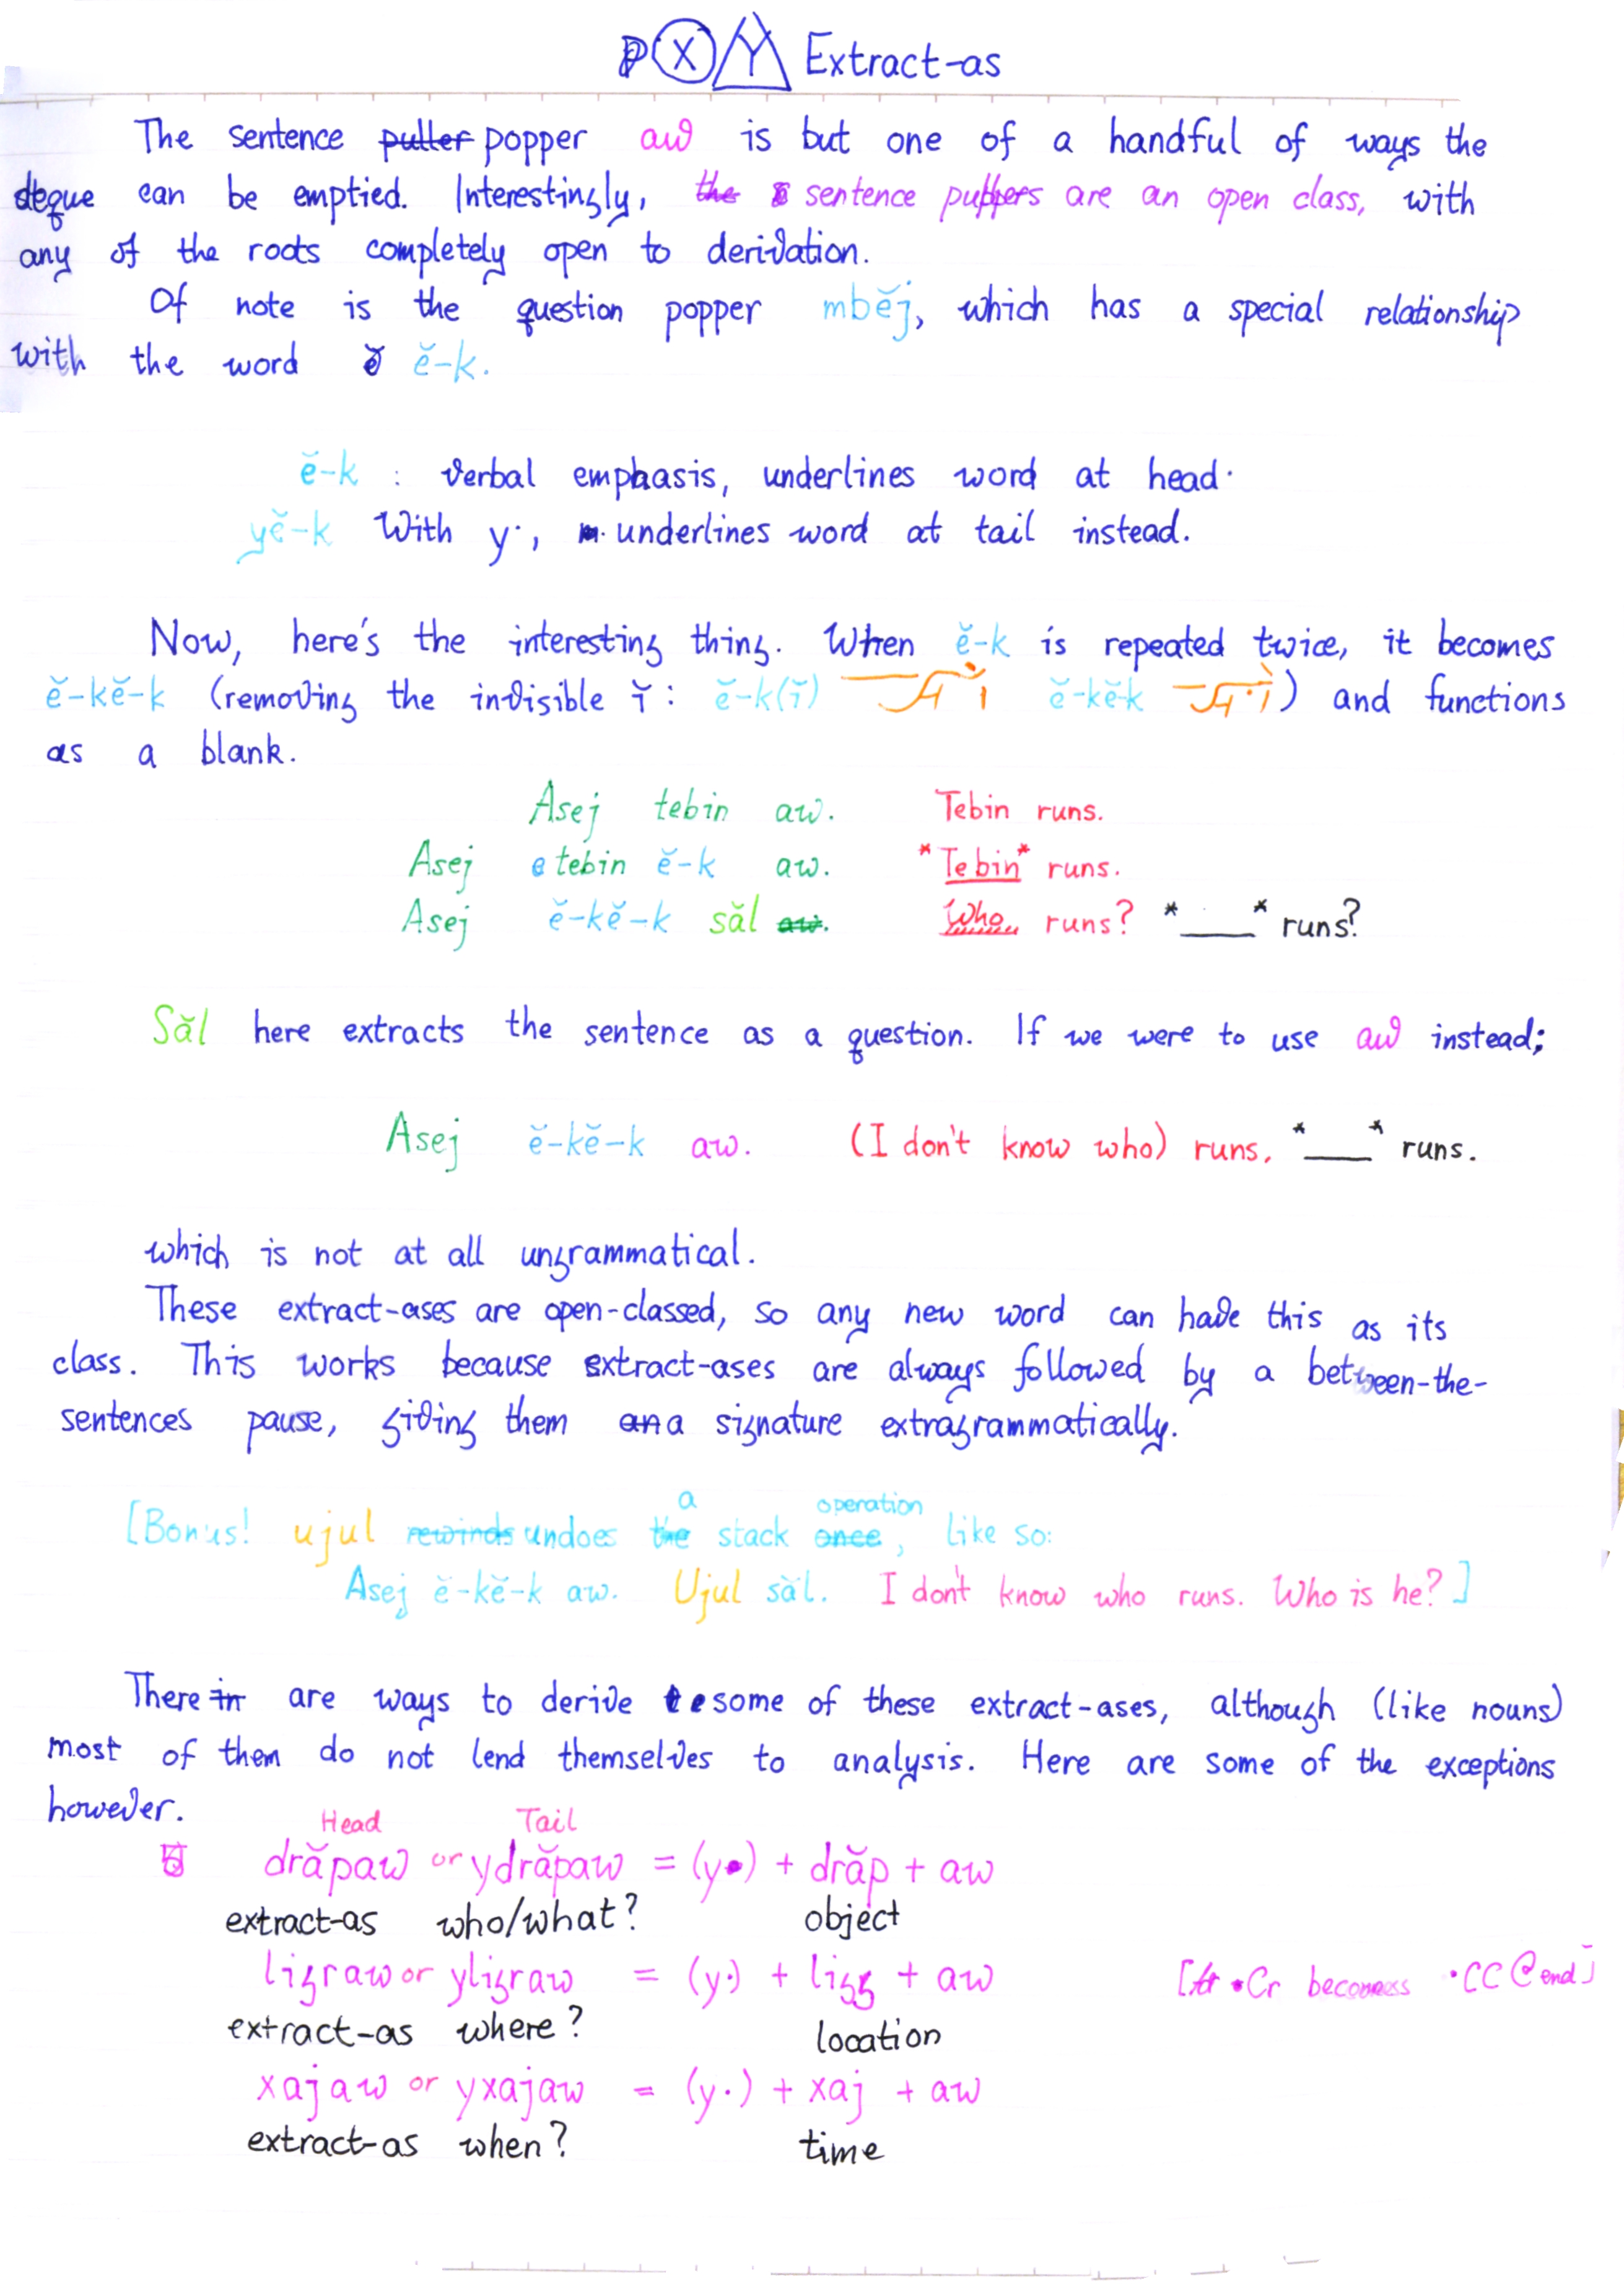 X Y Extract-as
The sentence puller popper aw is but one of a handful of ways the
deque can be emptied. Interestingly, the sentence puppers are an open class, with
any of the roots completely open to derivation.
Of note is the question popper mbĕj, which has a special relationship
with the word ĕ-k.
ĕ-k : verbal emphasis, underlines word at head.
yĕ-k With y·, underlines word at tail instead.
Now, here's the interesting thing. When ĕ-k is repeated twice, it becomes
ĕ-kĕ-k (removing the invisible ĭ: ĕ-k(ĭ) ĕ-kĕ-k) and functions
as a blank.
Asej tebin aw. Tebin runs.
Asej tebin ĕ-k aw. *Tebin* runs.
Asej ĕ-kĕ-k săl aw. Who runs? *___* runs?
Săl here extracts the sentence as a question. If we were to use aw instead;
Asej ĕ-kĕ-k aw. (I don't know who) runs. *___* runs.
which is not at all ungrammatical.
These extract-ases are open-classed, so any new word can have this as its
class. This works because extract-ases are always followed by a between-the-
sentences pause, giving them an a signature extragrammatically.
a operation
[Bonus! ujul rewinds undoes the stack once, like so:
Asej ĕ-kĕ-k aw. Ujul săl. I don't know who runs. Who is he?]
There in are ways to derive some of these extract-ases, although (like nouns)
most of them do not lend themselves to analysis. Here are some of the exceptions
however.
Head Tail
drăpaw or ydrăpaw = (y·) + drăp + aw
extract-as who/what? object
ligraw or yligraw = (y·) + ligg + aw [·Cr becomes ·CC @ end]
extract-as where? location
xajaw or yxajaw = (y·) + xaj + aw
extract-as when? time